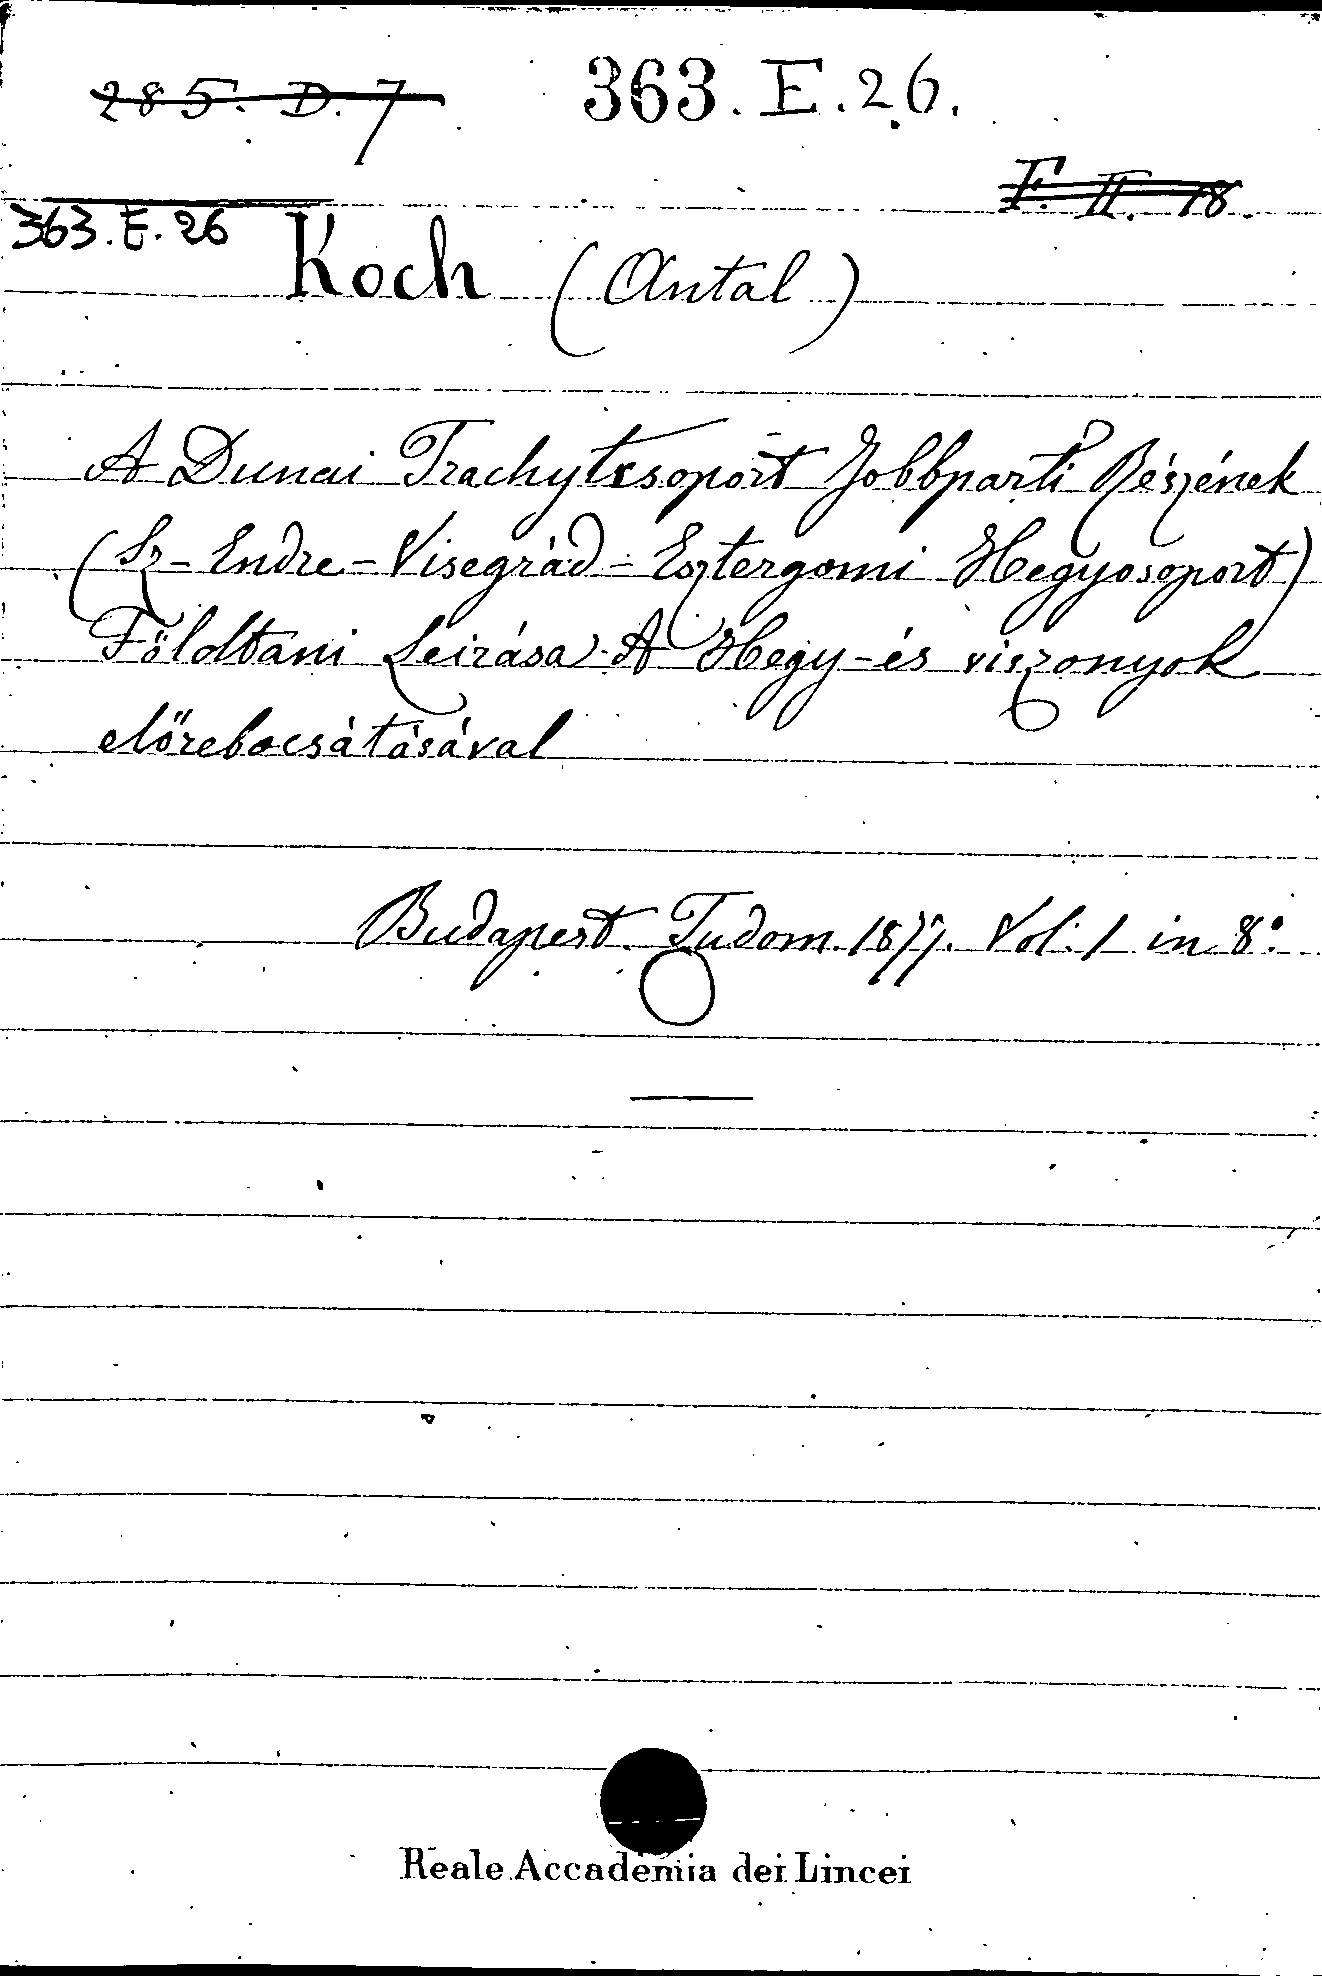 285. D. 7 363. E. 26.
F. II. 18.
363. E. 26
Koch (Antal)
A Dunai Trachytcsoport Jobbparti Részének
(Sz-Endre-Visegrád-Esztergomi Hegyosoport)
Földtani Leirása. A Hegy-és viszonyok
előrebocsátásával
Budapest. Tudom. 1877. Vol. 1 in 8°.
Reale Accademia dei Lincei